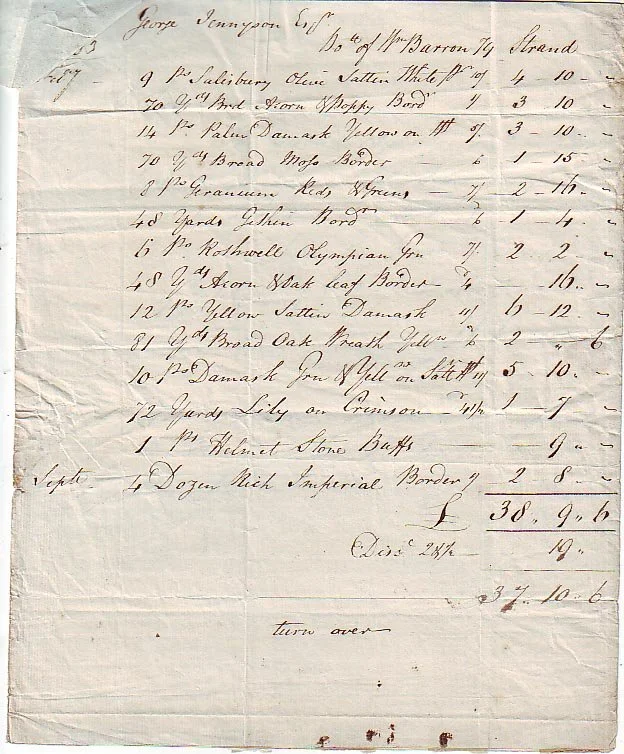 George Tennyson Esqr
Bot of Wm Barron 74 Strand
9 Ps Salisbury Olive Sattin White Gr 10/ 4 - 10 - "
70 Yds Brd Acorn & Poppy Bordr 1/ 3 10 "
14 Ps Palm Damask Yellow on Wt 5/ 3 - 10 - "
70 Yds Broad Moss Border — 6 1 - 15 - "
8 Ps Geranium Reds & Greens — 7/ 2 - 16 - "
48 Yards Bordr — 6 1 - 4 - "
6 Ps Roshwell Olympian Grn 7/ 2 - 2 - "
48 Yds Acorn & Oak leaf Border — 4 — 16 - "
12 Ps Yellow Sattin Damask 11/ 6 - 12 - "
81 Yds Broad Oak Wreath Yellw 6 2 - " 6
10 Ps Damask Grn & Yellws on Satt Wt 11/ 5 - 10 - "
72 Yards Lily on Crimson — 4 1/2 1 - 7 - "
1 Ps Helmet Stone Buffs — 9 - "
Septr 4 Dozen Rich Imperial Border 2 - 8 - "
£ 38 " 9 " 6
Disct 2 1/2 — 19 "
37 - 10 - 6
turn over